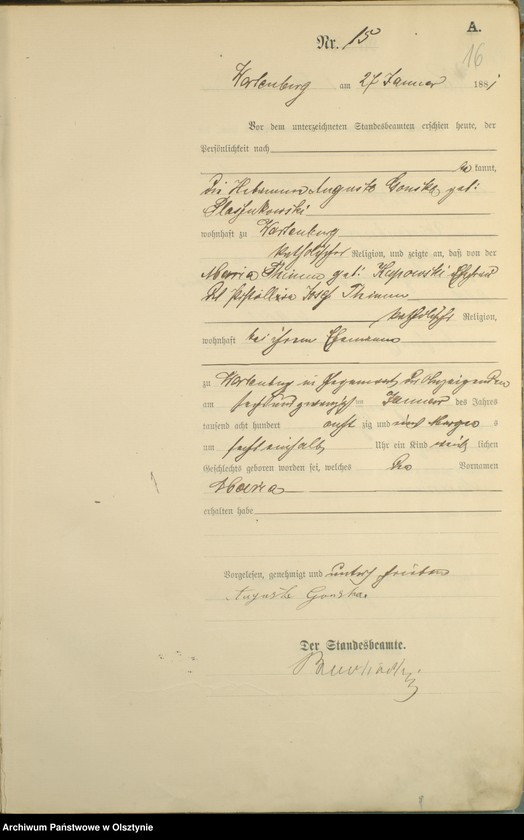 A.
Nr. 15
16
Wartenburg am 27 Januar 1881
Vor dem unterzeichneten Standesbeamten erschien heute, der
Persönlichkeit nach
be kannt,
die Hebamme Auguste Gonska geb:
wohnhaft zu Wartenburg
katholischer Religion, und zeigte an, daß von der
Maria Thimm geb: Ehefrau
des Josef Thimm
katholischer Religion,
wohnhaft bei ihrem Ehemanne
zu Wartenburg in Gegenwart der Anzeigenden
am sechsundzwanzigsten Januar des Jahres
tausend acht hundert acht zig und eins Morgen s
um sechseinhalb Uhr ein Kind weib lichen
Geschlechts geboren worden sei, welches den Vornamen
Maria
erhalten habe
Vorgelesen, genehmigt und unterschrieben
Auguste Gonska.
Der Standesbeamte.
Archiwum Państwowe w Olsztynie